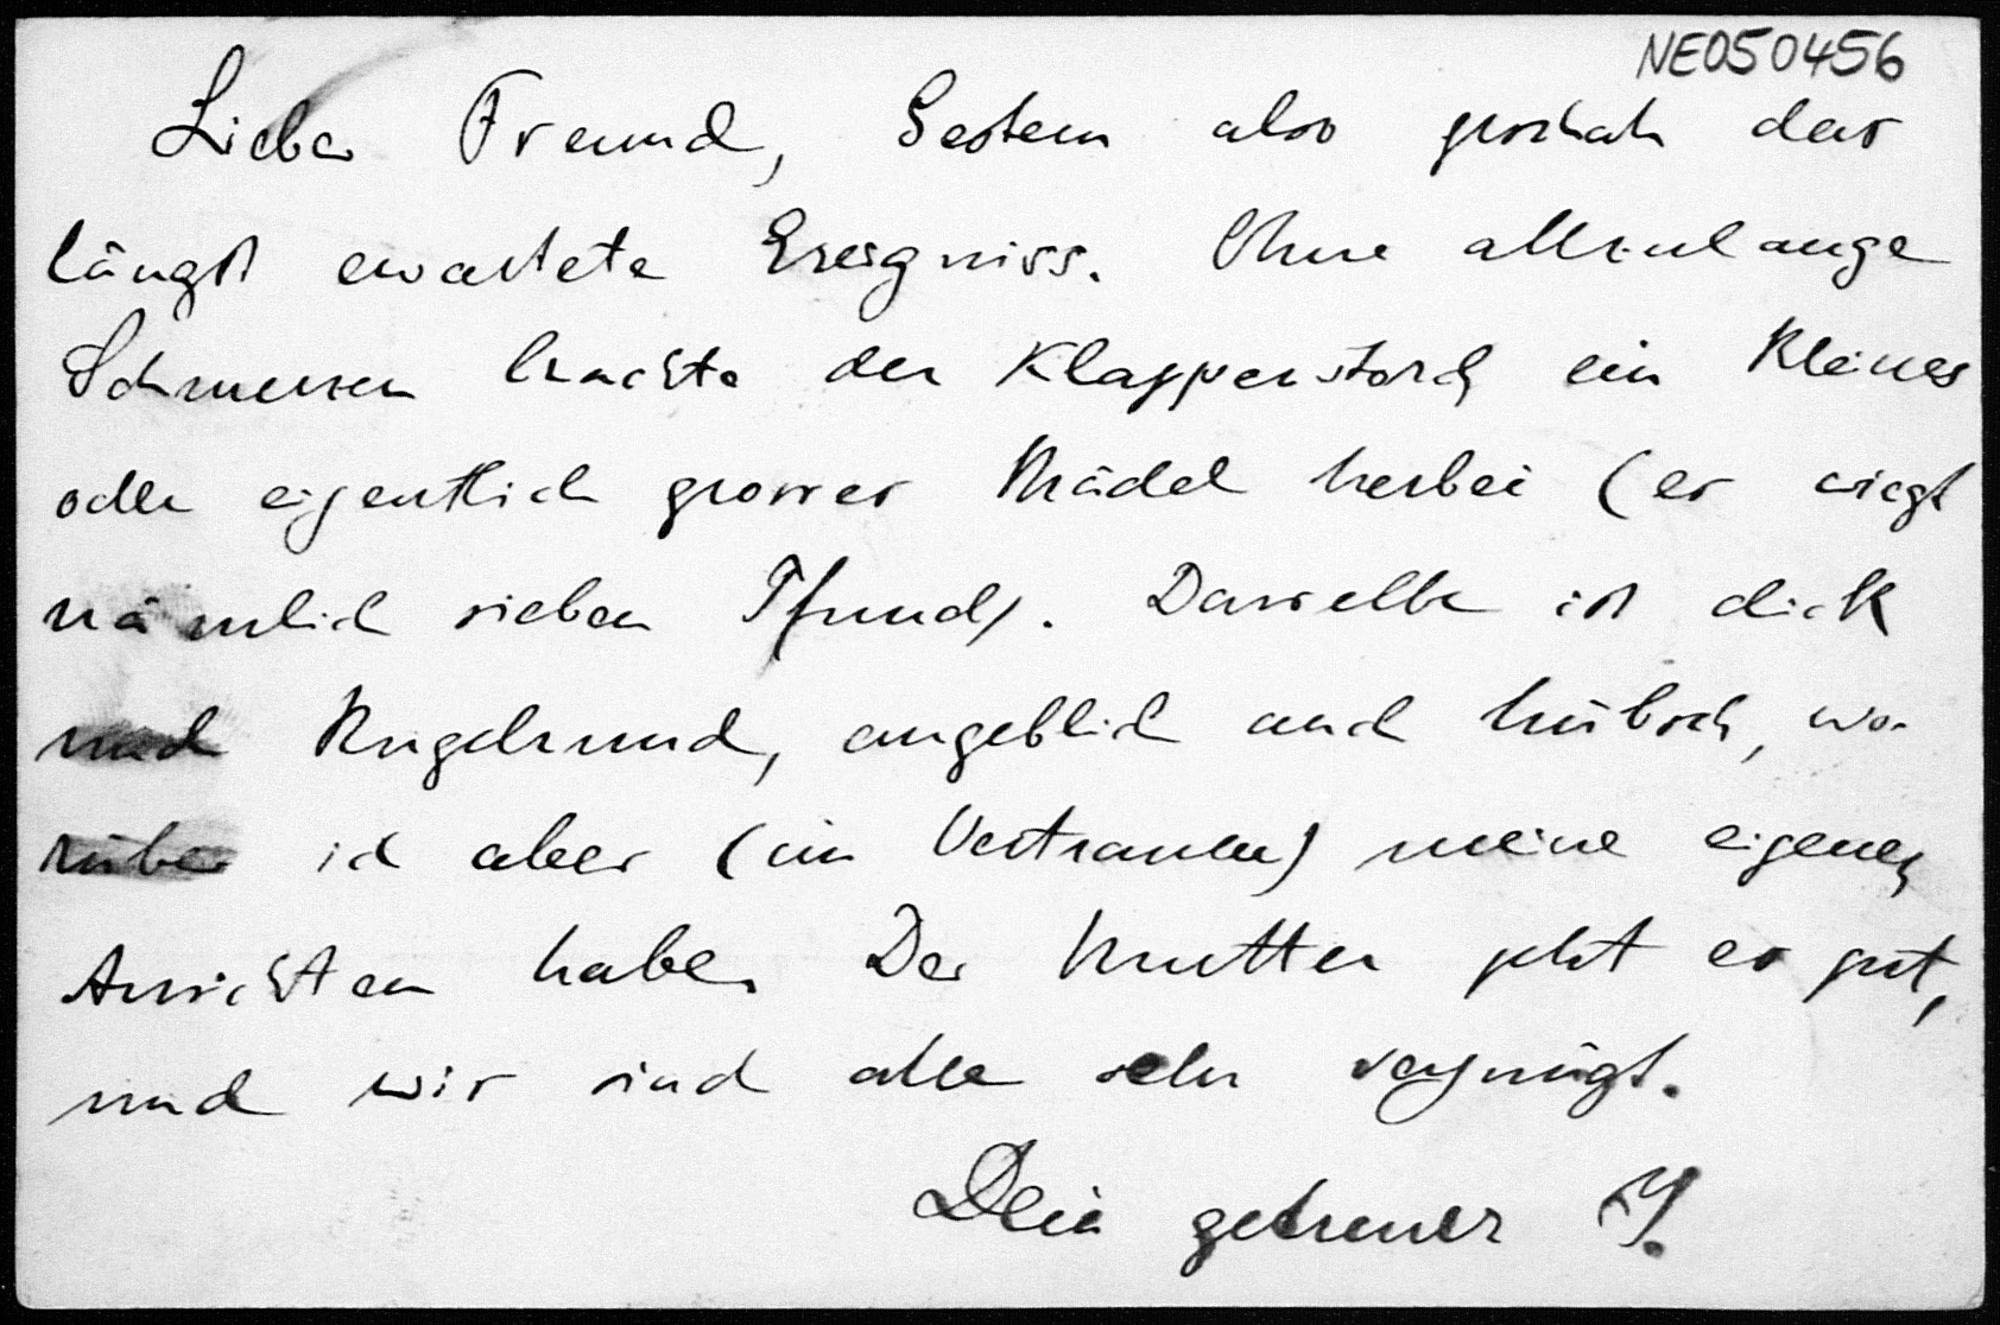 NE050456
Lieber Freund, Gestern also geschah das
längst erwartete Ereigniss. Ohne allzulange
Schmerzen brachte der Klapperstorch ein kleines
oder eigentlich grosses Mädel herbei (es wiegt
nämlich sieben Pfund). Dasselbe ist dick
und kugelrund, angeblich auch hübsch, wo-
rüber ich aber (im Vertrauen) meine eigenen
Ansichten habe. Der Mutter geht es gut,
und wir sind alle sehr vergnügt.
Dein getreuer